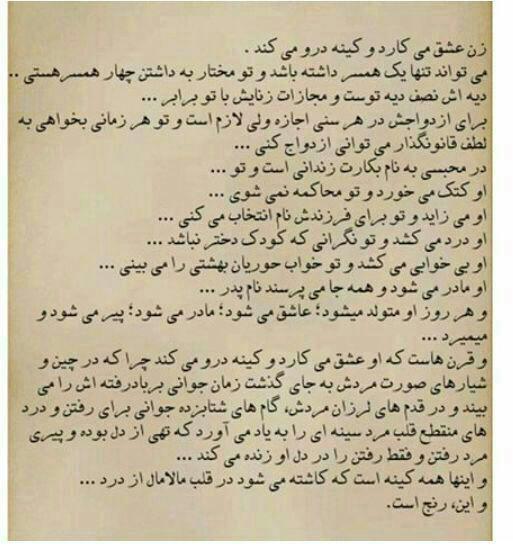 زن عشق می کارد و کینه درو می کند .
می تواند تنها یک همسر داشته باشد و تو مختار به داشتن چهار همسرهستی ..
دیه اش نصف دیه توست و مجازات زنایش با تو برابر ...
برای ازدواجش در هر سنی اجازه ولی لازم است و تو هر زمانی بخواهی به
لطف قانونگذار می توانی ازدواج کنی ...
در محبسی به نام بکارت زندانی است و تو ...
او کتک می خورد و تو محاکمه نمی شوی ...
او می زاید و تو برای فرزندش نام انتخاب می کنی ...
او درد می کشد و تو نگرانی که کودک دختر نباشد ...
او بی خوابی می کشد و تو خواب حوریان بهشتی را می بینی ...
او مادر می شود و همه جا می پرسند نام پدر ...
و هر روز او متولد میشود؛ عاشق می شود؛ مادر می شود؛ پیر می شود و
میمیرد ...
و قرن هاست که او عشق می کارد و کینه درو می کند چرا که در چین و
شیارهای صورت مردش به جای گذشت زمان جوانی بربادرفته اش را می
بیند و در قدم های لرزان مردش، گام های شتابزده جوانی برای رفتن و درد
های منقطع قلب مرد سینه ای را به یاد می آورد که تهی از دل بوده و پیری
مرد رفتن و فقط رفتن را در دل او زنده می کند ...
و اینها همه کینه است که کاشته می شود در قلب مالامال از درد ...
و این، رنج است.